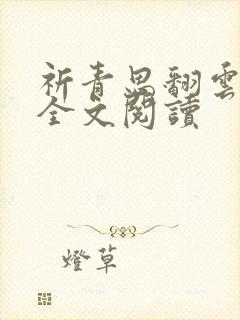 祈青思翻雲
全文閱讀
燈草